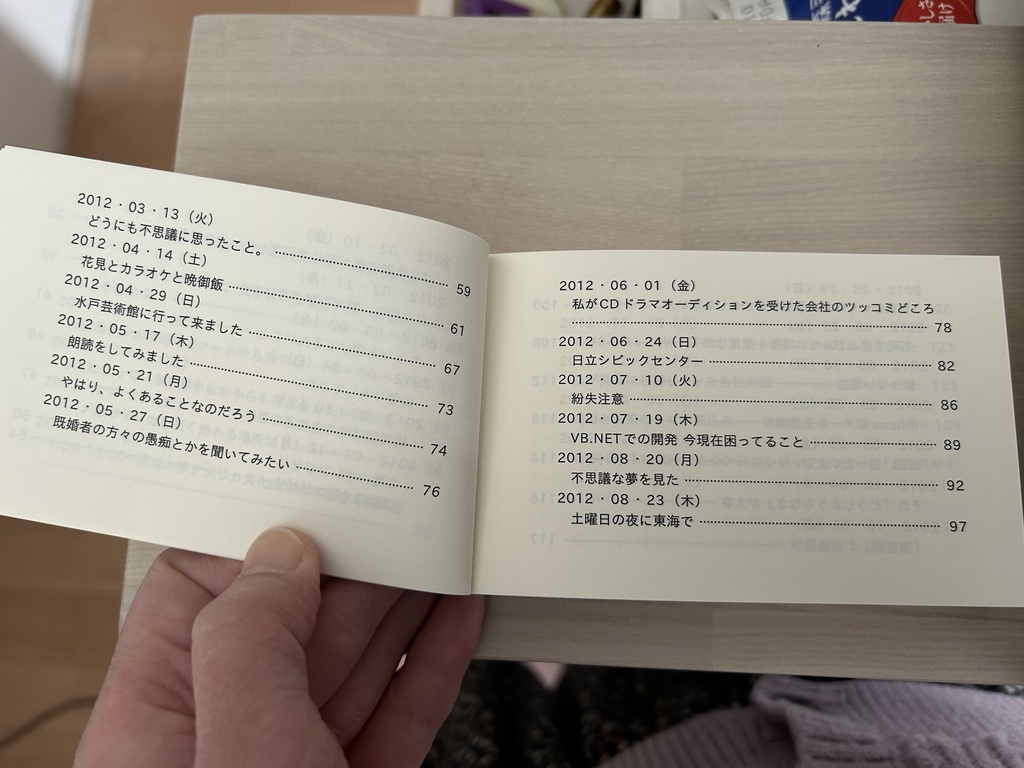 2012・03・13（火）
どうにも不思議に思ったこと。 59
2012・04・14（土）
花見とカラオケと晩御飯 61
2012・04・29（日）
水戸芸術館に行って来ました 67
2012・05・17（木）
朗読をしてみました 73
2012・05・21（月）
やはり、よくあることなのだろう 74
2012・05・27（日）
既婚者の方々の愚痴とかを聞いてみたい 76
2012・06・01（金）
私がCDドラマオーディションを受けた会社のツッコミどころ
78
2012・06・24（日）
日立シビックセンター 82
2012・07・10（火）
紛失注意 86
2012・07・19（木）
VB.NETでの開発 今現在困ってること 89
2012・08・20（月）
不思議な夢を見た 92
2012・08・23（木）
土曜日の夜に東海で 97